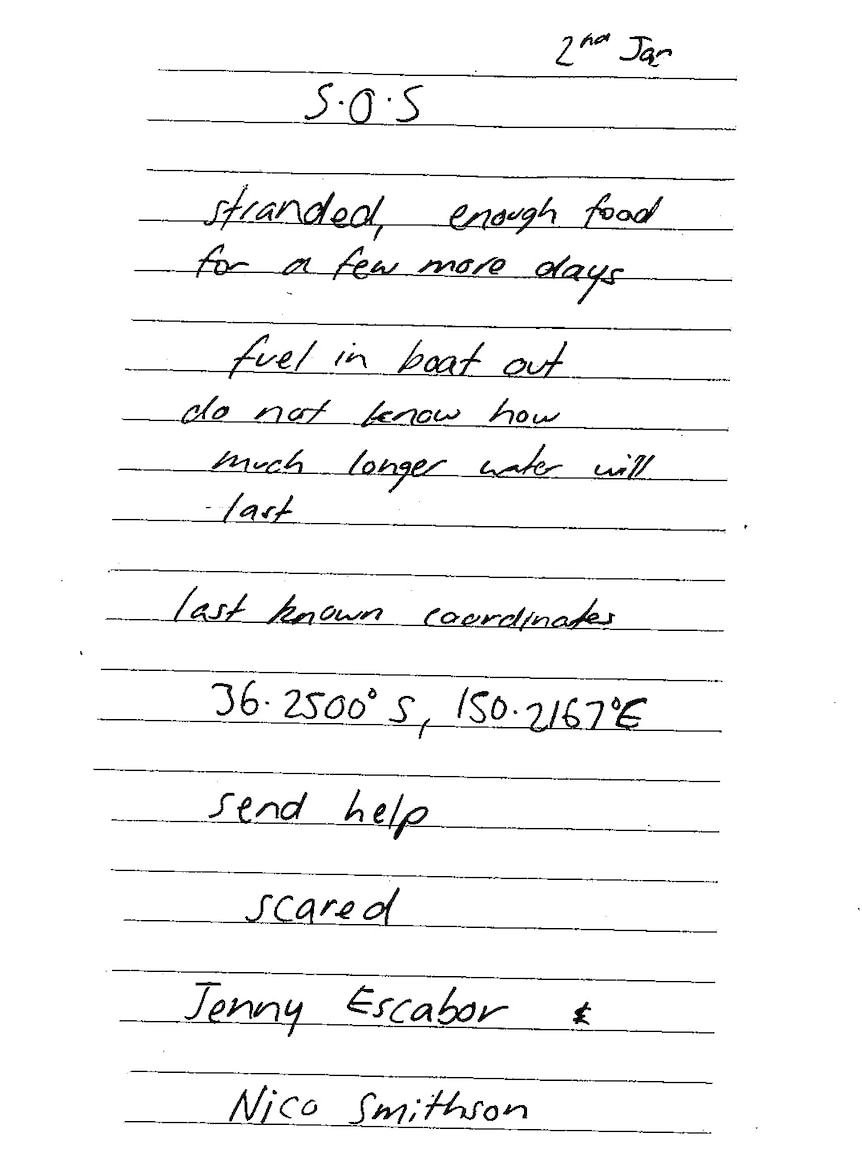 2nd Jan
S.O.S
stranded, enough food
for a few more days
fuel in boat out
do not know how
much longer water will
last
last known coordinates
36.2500° S, 150.2167°E
send help
scared
Jenny Escabor &
Nico Smithson